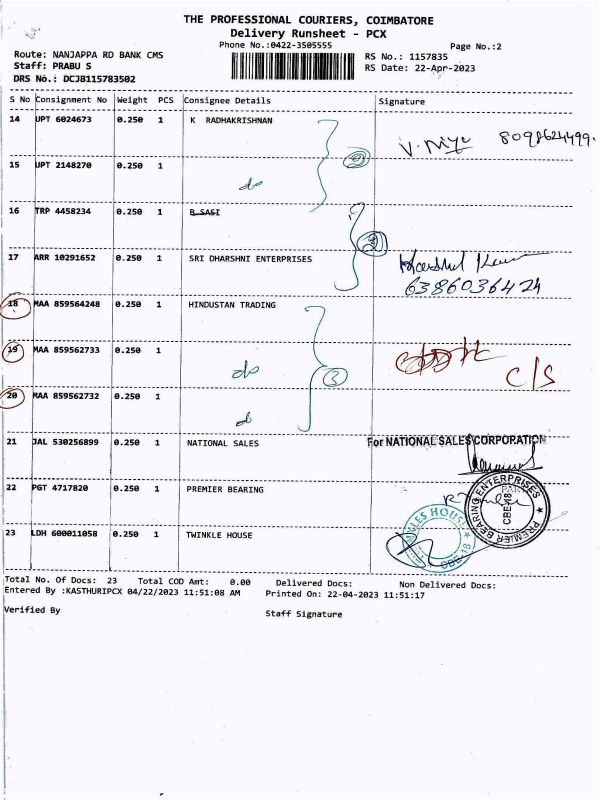 THE PROFESSIONAL COURIERS, COIMBATORE
Delivery Runsheet - PCX
Phone No.:0422-3505555
Page No.:2
Route: NANJAPPA RD BANK CMS
Staff: PRABU S
DRS No.: DCJB115783502
RS No.: 1157835
RS Date: 22-Apr-2023
S No Consignment No Weight PCS Consignee Details Signature
14 UPT 6024673 0.250 1 K RADHAKRISHNAN
8098624499.
15 UPT 2148270 0.250 1
do
2
16 TRP 4458234 0.250 1 B SASI
2
17 ARR 10291652 0.250 1 SRI DHARSHNI ENTERPRISES
6386036424
18 MAA 859564248 0.250 1 HINDUSTAN TRADING
19 MAA 859562733 0.250 1
do
3
C/S
20 MAA 859562732 0.250 1
21 JAL 530256899 0.250 1 NATIONAL SALES
For NATIONAL SALES CORPORATION
22 PGT 4717820 0.250 1 PREMIER BEARING
PREMIER BEARING ENTERPRISES
CBE-18
23 LDH 600011058 0.250 1 TWINKLE HOUSE
HOUSE
CBE-18
Total No. Of Docs: 23 Total COD Amt: 0.00 Delivered Docs: Non Delivered Docs:
Entered By :KASTHURIPCX 04/22/2023 11:51:08 AM Printed On: 22-04-2023 11:51:17
Verified By
Staff Signature